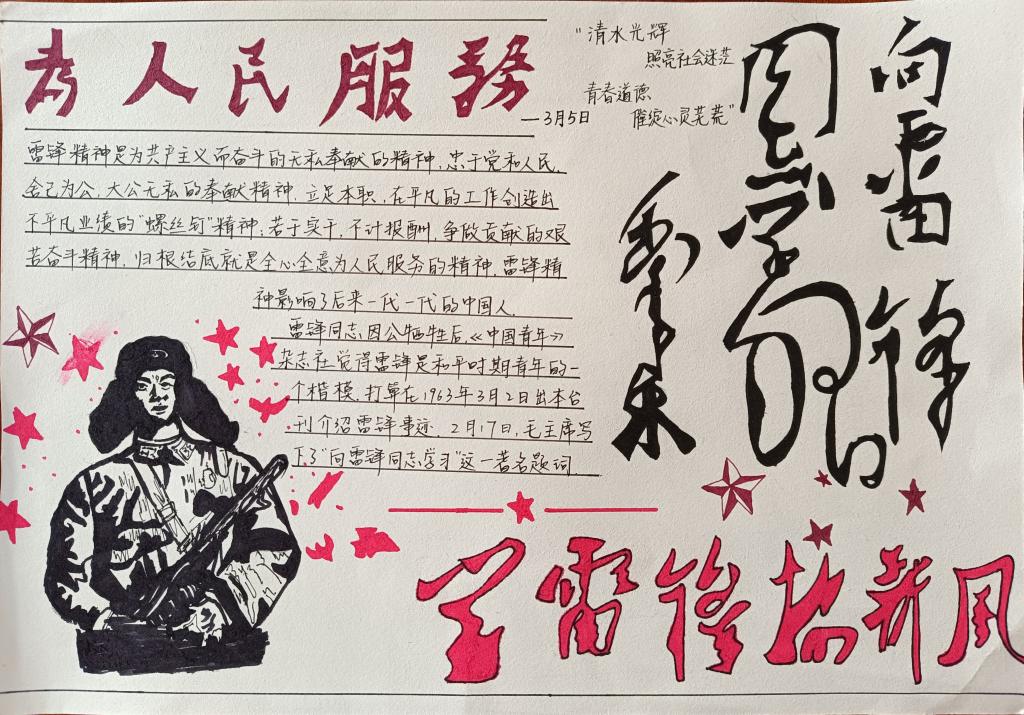 为人民服务
—3月5日
"清水光辉
照亮社会迷茫
青春道德
催绽心灵芜荒"
雷锋精神是为共产主义而奋斗的无私奉献的精神,忠于党和人民,
舍己为公,大公无私的奉献精神,立足本职,在平凡的工作创造出
不平凡业绩的"螺丝钉"精神;若于实干,不计报酬,争做贡献的艰
苦奋斗精神,归根结底就是全心全意为人民服务的精神,雷锋精
神影响了后来一代一代的中国人.
雷锋同志因公牺牲后,《中国青年》
杂志社觉得雷锋是和平时期青年的一
个楷模,打算在1963年3月2日出本台
刊介绍雷锋事迹.2月17日,毛主席写
下了"向雷锋同志学习"这一著名题词.
向雷锋
同志学习
毛泽东
学雷锋树新风